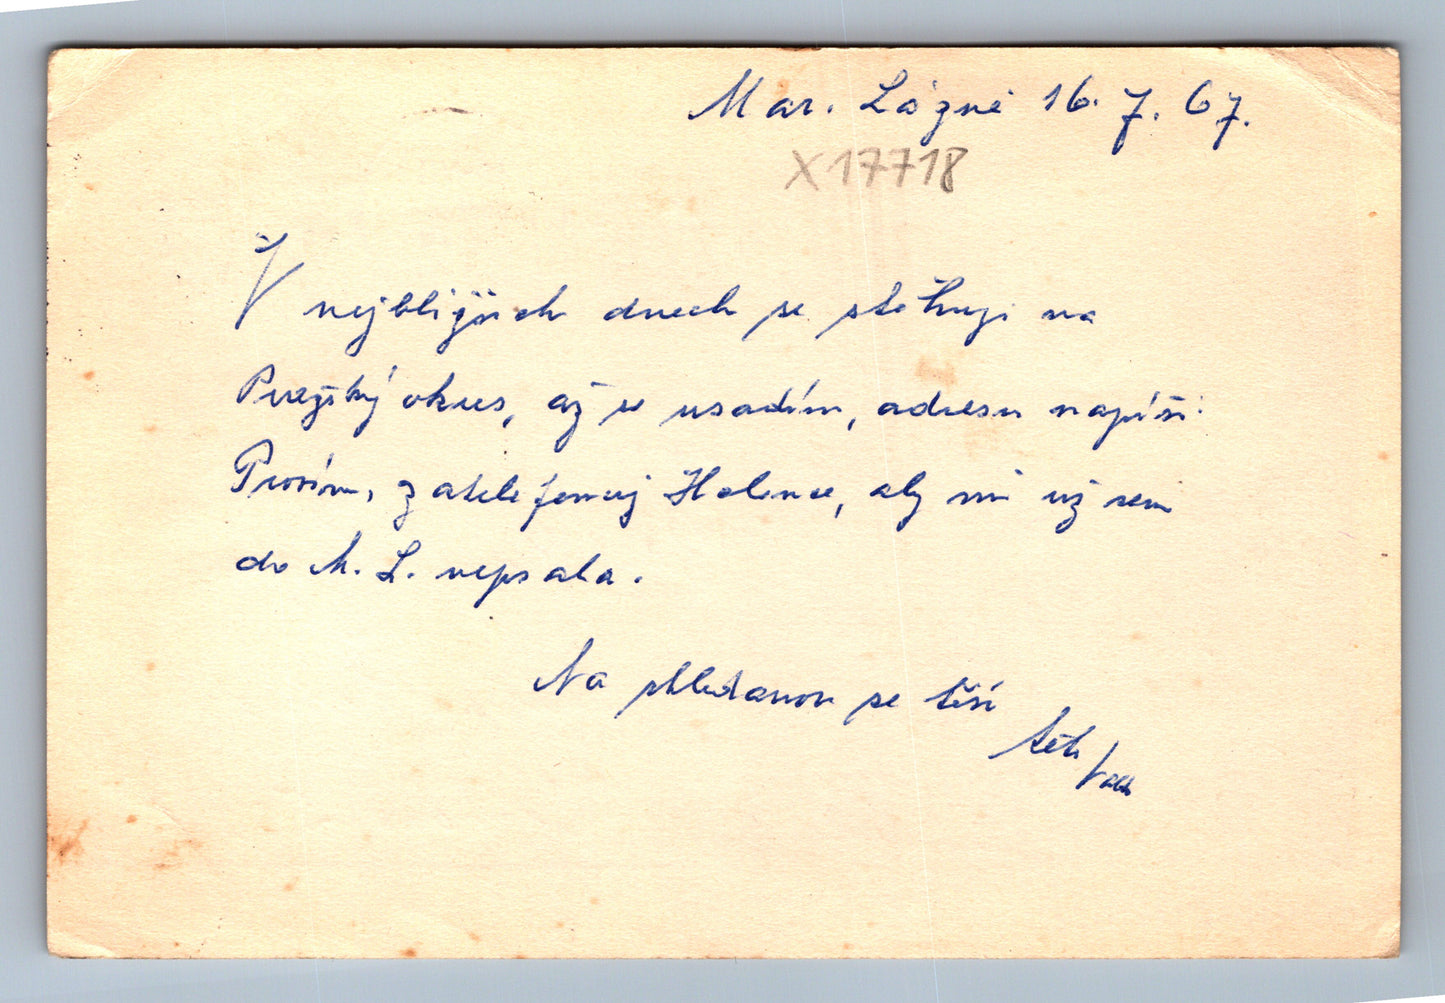 Mar. Lázně 16. 7. 67.
X17718
V nejbližších dnech se stěhuji na
Pražský okres, až se usadím, adresu napíši.
Prosím, zatelefonuj Helence, aby mi už sem
do M. L. nepsala.
Na shledanou se těší